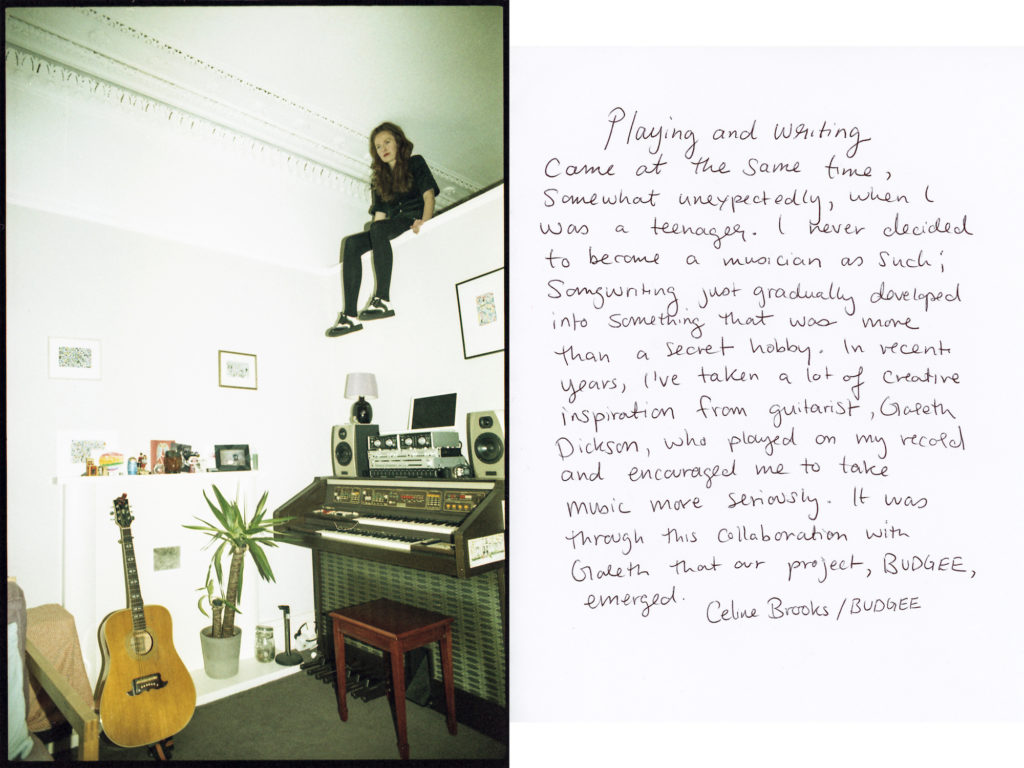 Playing and writing
Came at the same time,
Somewhat unexpectedly, when I
was a teenager. I never decided
to become a musician as such;
Songwriting just gradually developed
into something that was more
than a secret hobby. In recent
years, I've taken a lot of creative
inspiration from guitarist, Gareth
Dickson, who played on my record
and encouraged me to take
music more seriously. It was
through this collaboration with
Gareth that our project, BUDGEE,
emerged.
Celine Brooks / BUDGEE